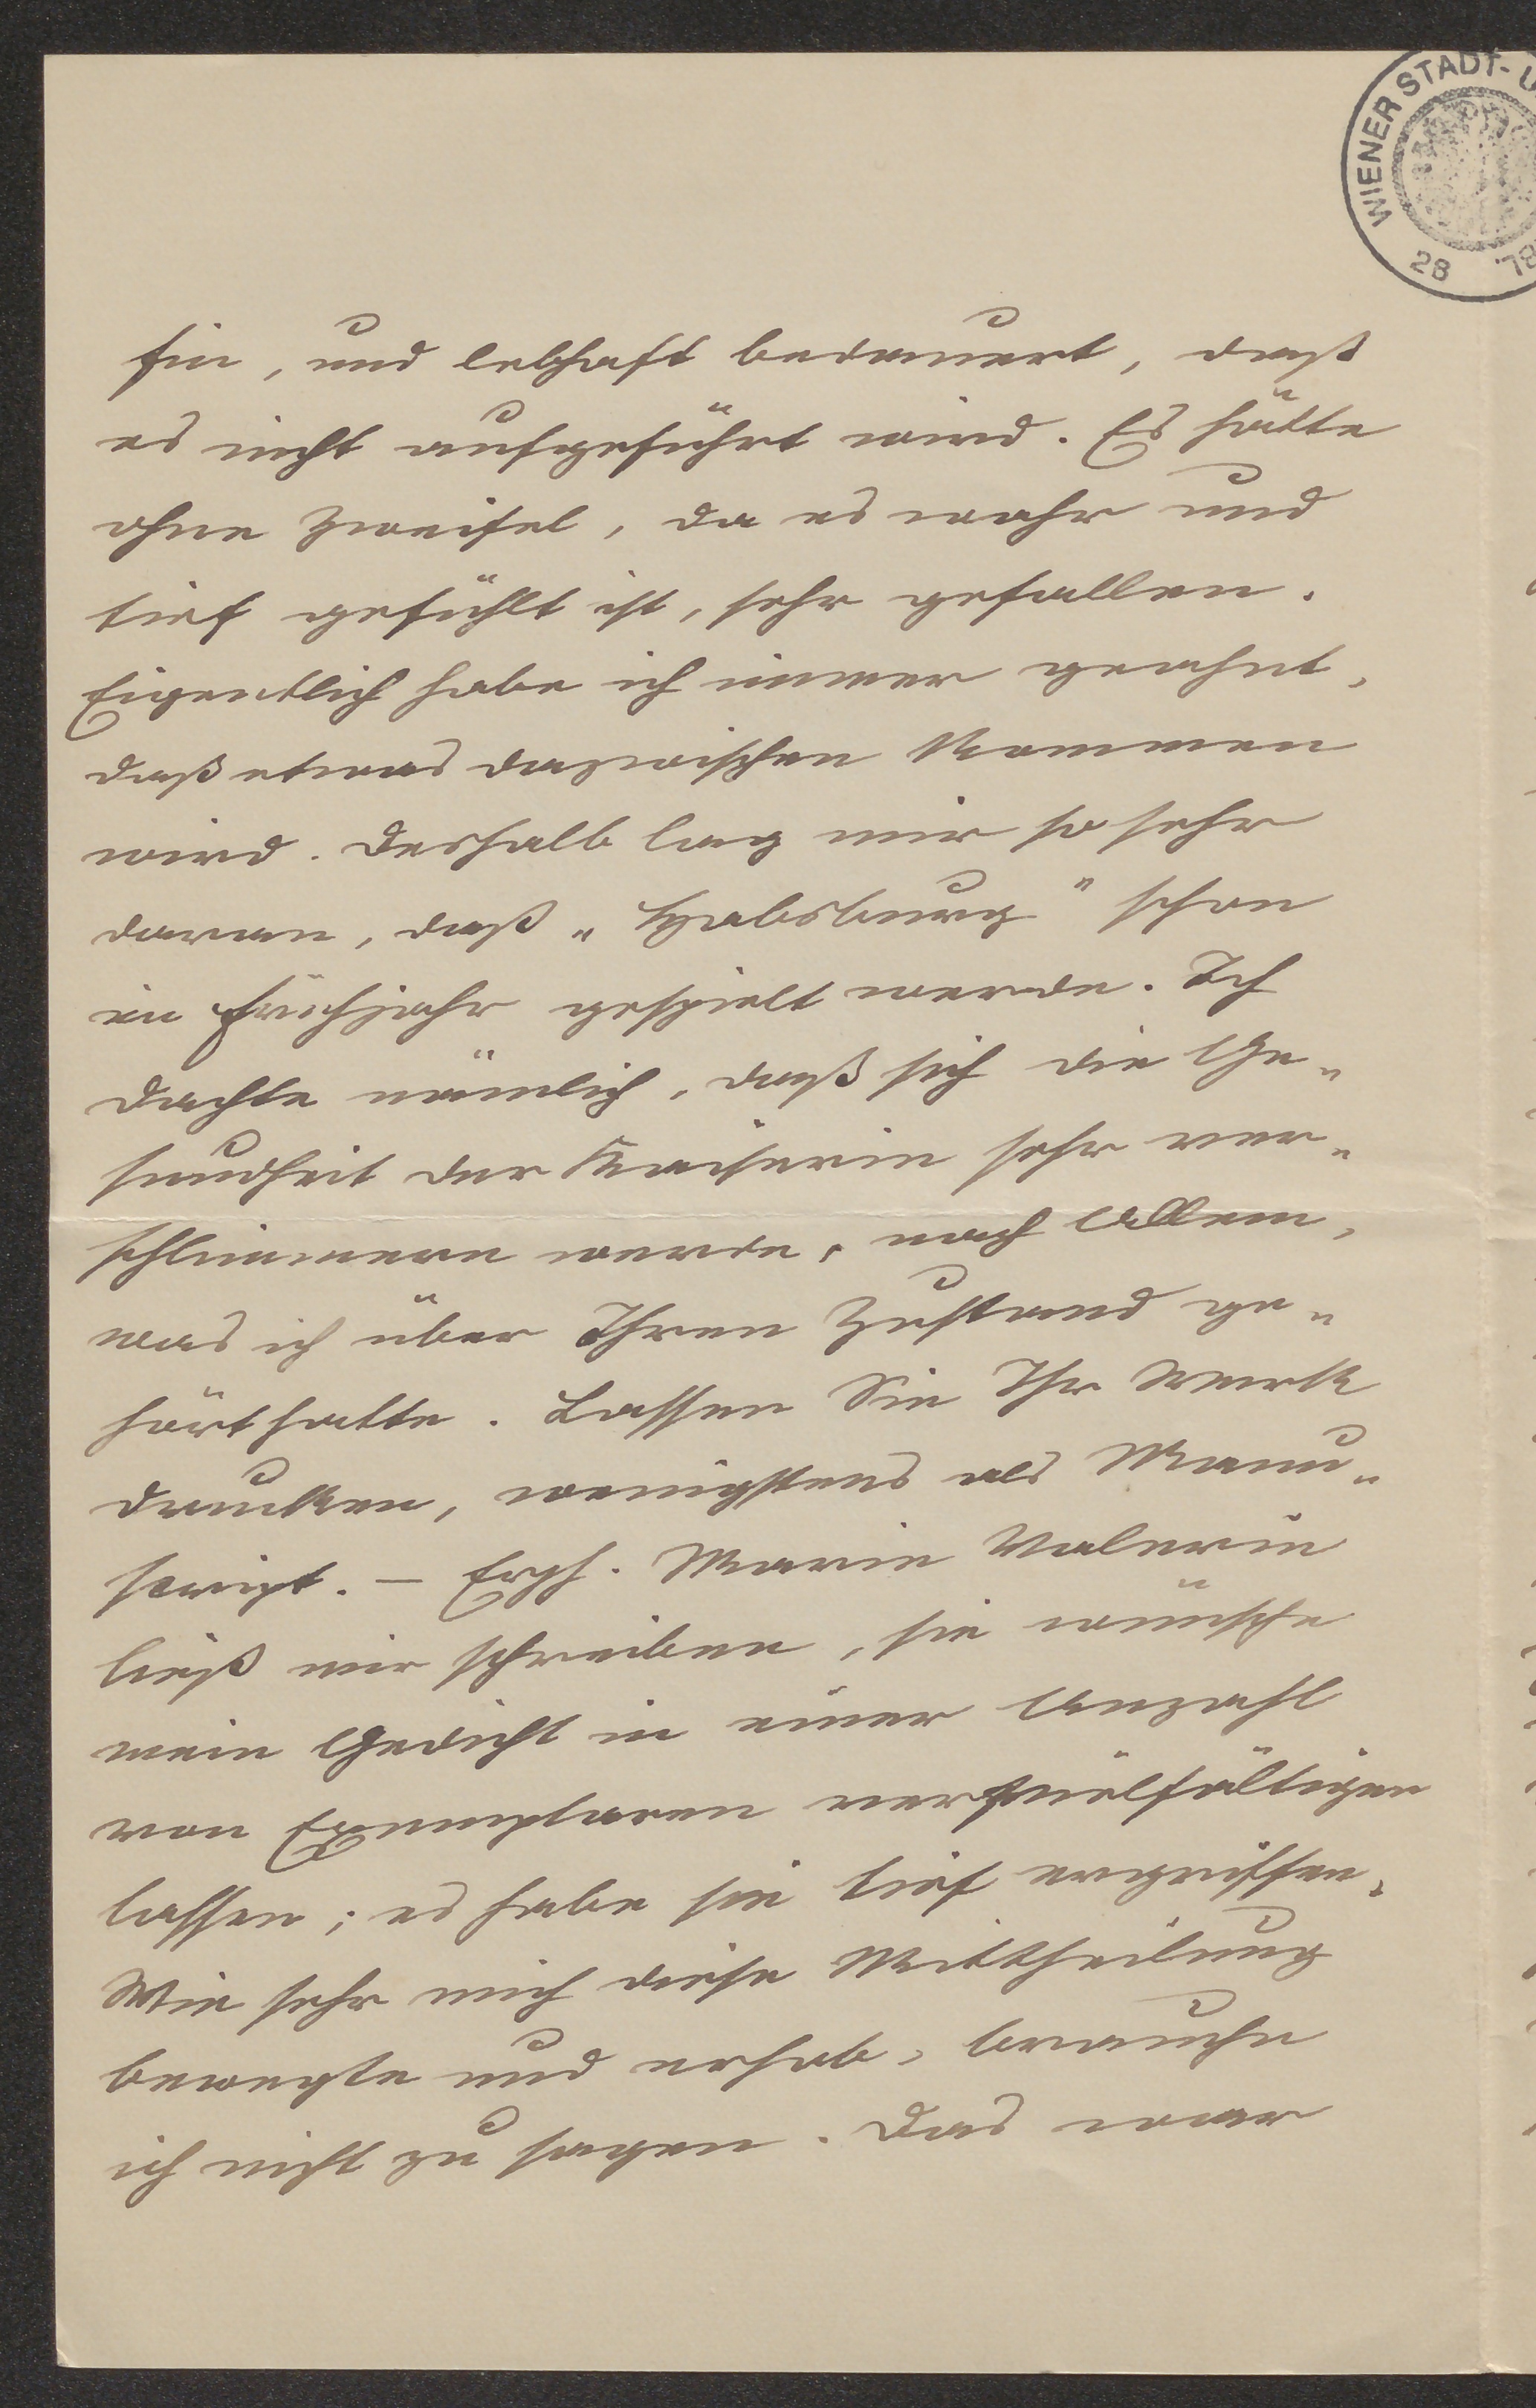 WIENER STADT- U
28 78
hin, und lebhaft bedauert, daß
es nicht aufgeführt wird. Es hätte
ohne Zweifel, da es wahr und
tief gefühlt ist, sehr gefallen.
Eigentlich habe ich immer geahnt,
daß etwas dazwischen kommen
wird. Deshalb lag mir so sehr
daran, daß „Habsburg" schon
im Frühjahr gespielt werde. Ich
dachte nämlich, daß sich die Ge„
sundheit der Kaiserin sehr ver„
schlimmern werde, nach Allem,
was ich über Ihren Zustand ge„
hört hatte. Lassen Sie Ihr Werk
drucken, wenigstens als Manu„
script. – Erzh. Marie Valerie
ließ mir schreiben, sie wünsche
mein Gedicht in einer Anzahl
von Exemplaren vervielfältigen
lassen; es habe sie tief ergriffen.
Wie sehr mich diese Mittheilung
bewegte und erhob, brauche
ich nicht zu sagen. Das war